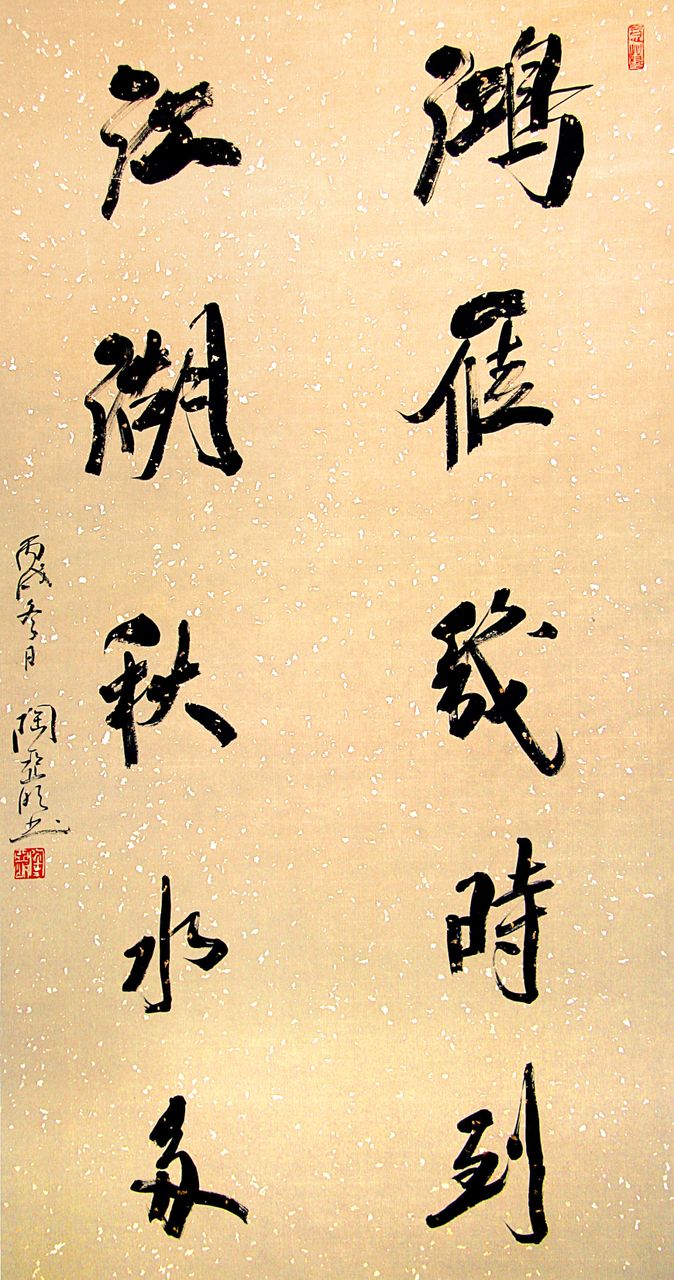 鴻雁幾時到
江湖秋水多
丙戌冬月 陶亞明書